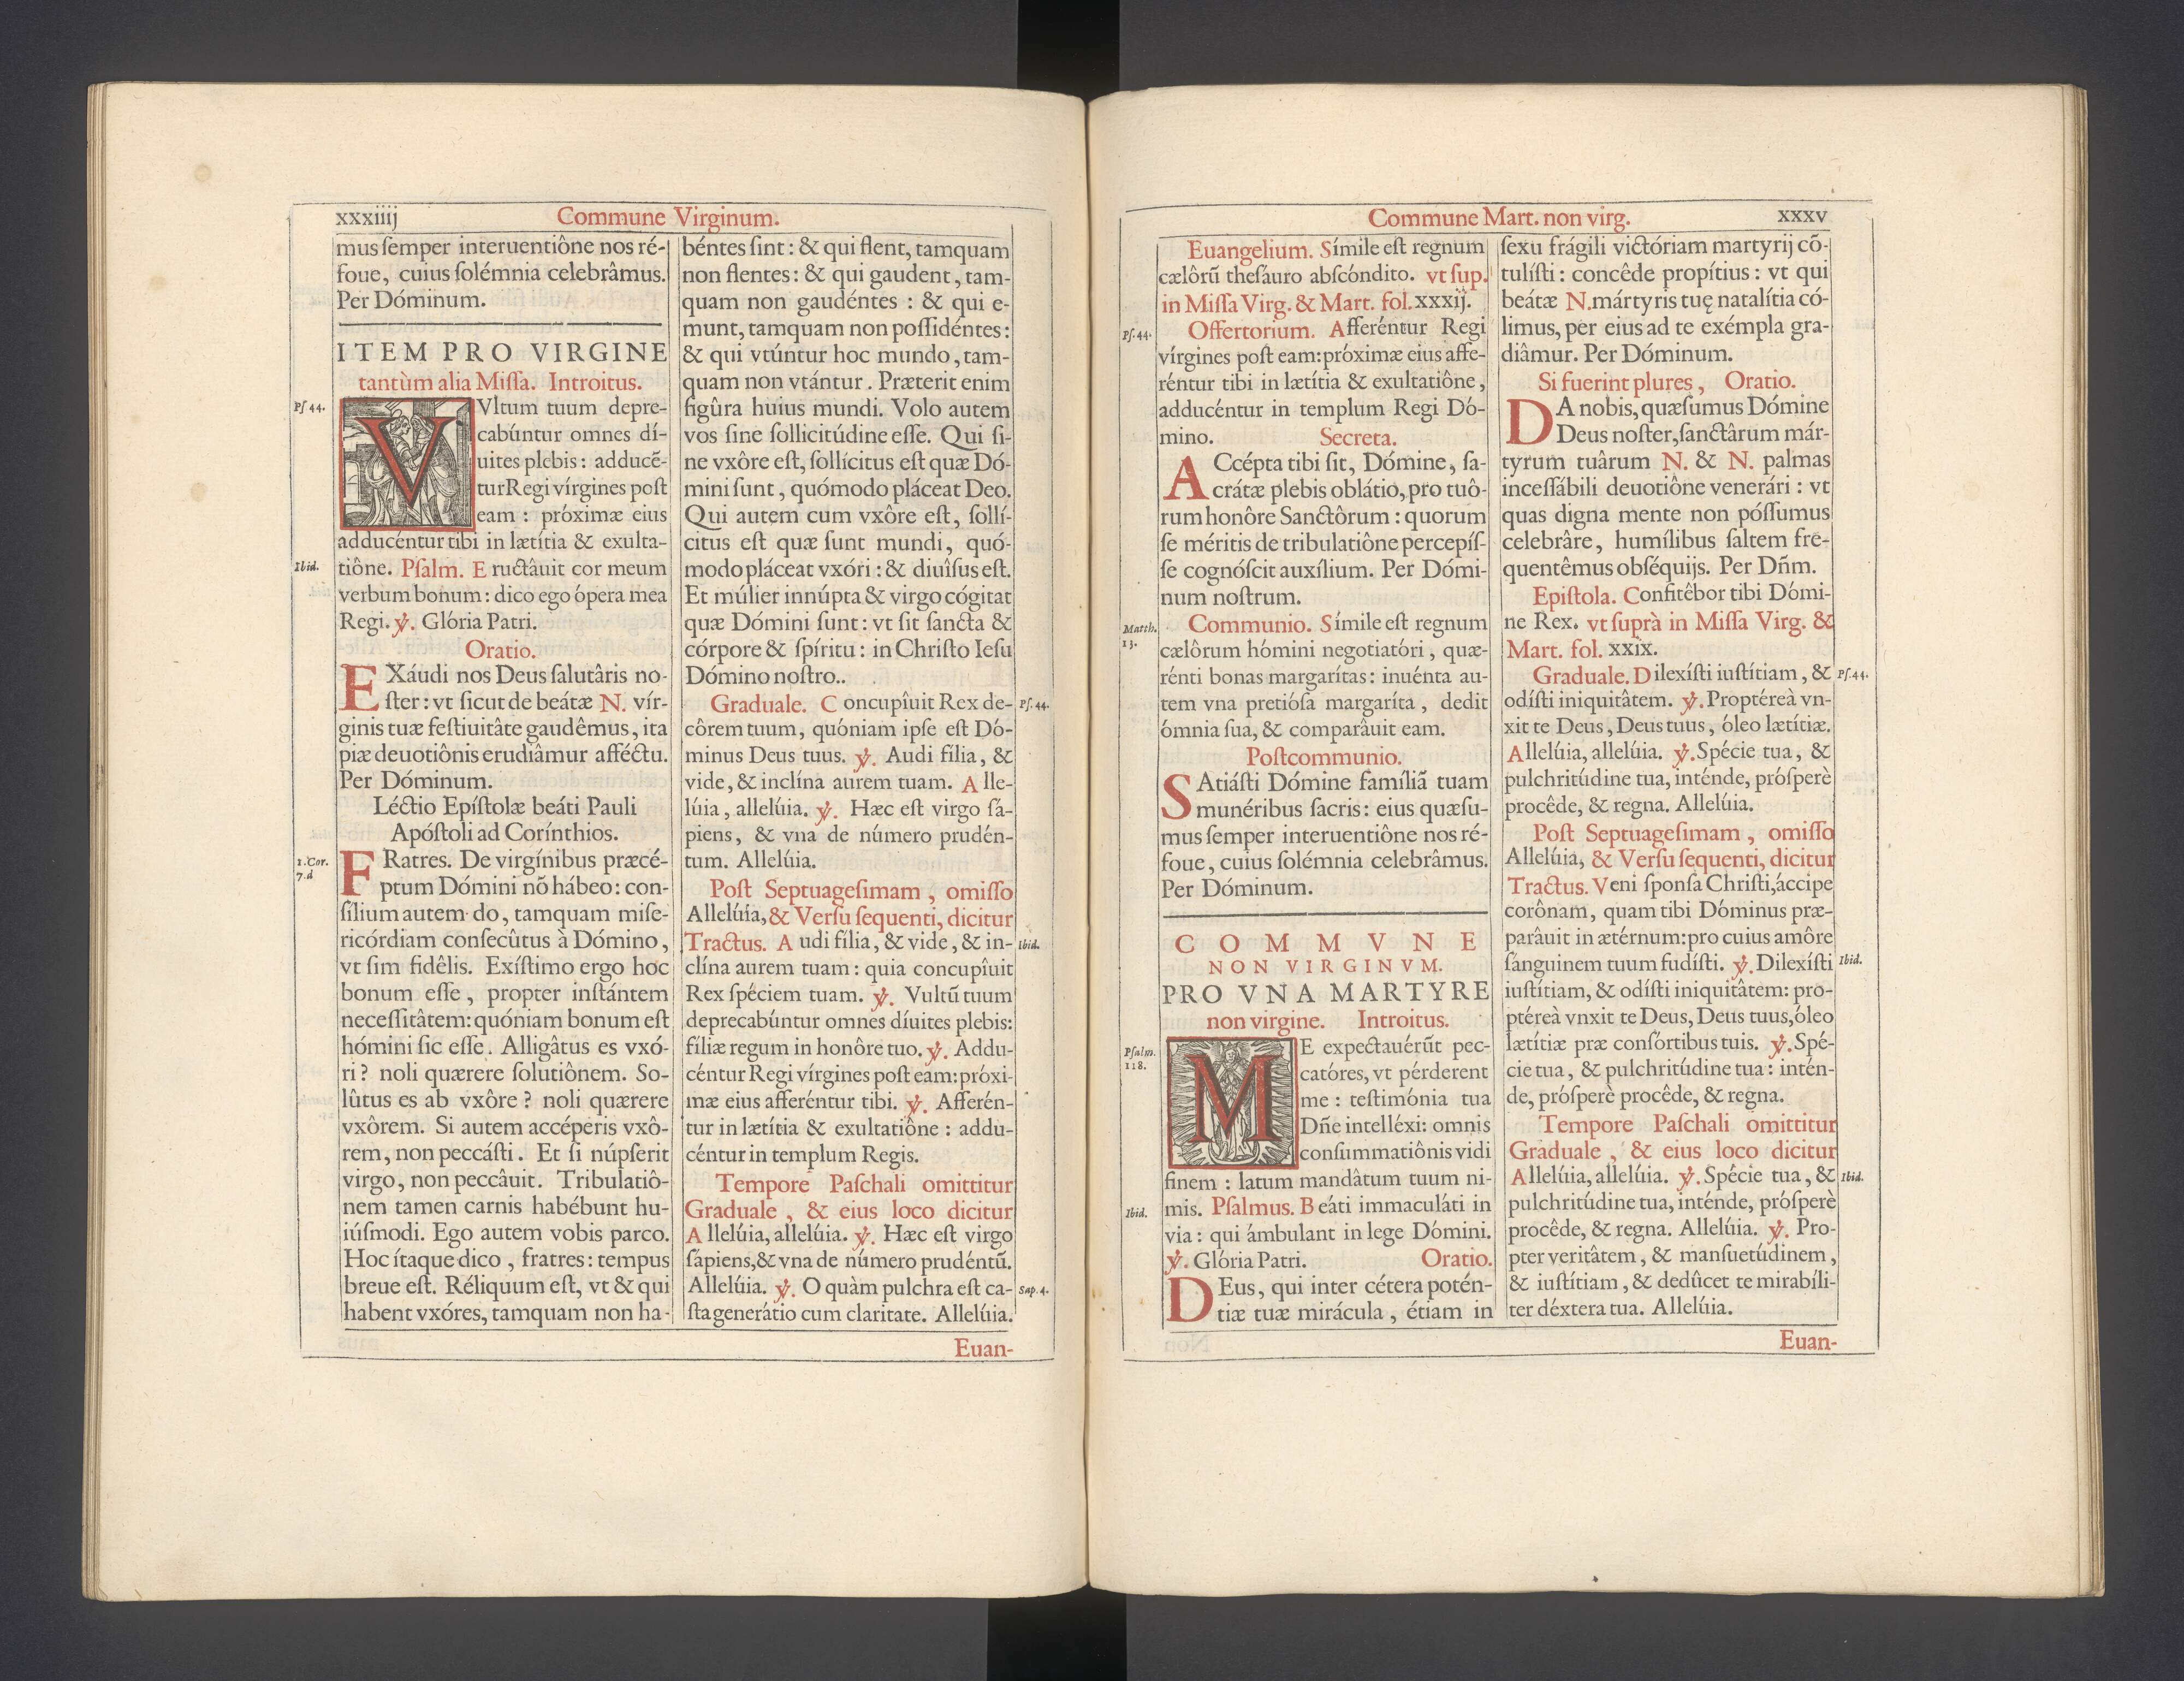 xxxiiij
Commune Virginum.
mus ſemper interuentiône nos ré-
foue, cuius ſolémnia celebrâmus.
Per Dóminum.
ITEM PRO VIRGINE
tantùm alia Miſſa. Introitus.
Pſ 44.
VVltum tuum depre-
cabúntur omnes dí-
uites plebis: adducē-
tur Regi vírgines poſt
eam: próximæ eius
adducéntur tibi in lætítia & exulta-
Ibid.
tiône. Pſalm. Eructâuit cor meum
verbum bonum: dico ego ópera mea
Regi. ℣. Glória Patri.
Oratio.
EXáudi nos Deus ſalutâris no-
ſter: vt ſicut de beátæ N. vír-
ginis tuæ feſtiuitâte gaudêmus, ita
piæ deuotiônis erudiâmur afféctu.
Per Dóminum.
Léctio Epíſtolæ beáti Pauli
Apóſtoli ad Corínthios.
1.Cor.
7.d
FRatres. De virgínibus præcé-
ptum Dómini nō hábeo: con-
ſílium autem do, tamquam miſe-
ricórdiam conſecûtus à Dómino,
vt ſim fidêlis. Exíſtimo ergo hoc
bonum eſſe, propter inſtántem
neceſſitâtem: quóniam bonum eſt
hómini ſic eſſe. Alligâtus es vxó-
ri? noli quærere ſolutiônem. So-
lûtus es ab vxôre? noli quærere
vxôrem. Si autem accéperis vxô-
rem, non peccáſti. Et ſi núpſerit
virgo, non peccâuit. Tribulatiô-
nem tamen carnis habébunt hu-
iúſmodi. Ego autem vobis parco.
Hoc ítaque dico, fratres: tempus
breue eſt. Réliquum eſt, vt & qui
habent vxóres, tamquam non ha-
béntes ſint: & qui flent, tamquam
non flentes: & qui gaudent, tam-
quam non gaudéntes: & qui e-
munt, tamquam non poſſidéntes:
& qui vtúntur hoc mundo, tam-
quam non vtántur. Præterit enim
figûra huius mundi. Volo autem
vos ſine ſollicitúdine eſſe. Qui ſi-
ne vxôre eſt, ſollícitus eſt quæ Dó-
mini ſunt, quómodo pláceat Deo.
Qui autem cum vxôre eſt, ſollí-
citus eſt quæ ſunt mundi, quó-
modo pláceat vxóri: & diuîſus eſt.
Et múlier innúpta & virgo cógitat
quæ Dómini ſunt: vt ſit ſancta &
córpore & ſpíritu: in Chriſto Ieſu
Dómino noſtro..
Graduale. Concupîuit Rex de-
Pſ. 44.
côrem tuum, quóniam ipſe eſt Dó-
minus Deus tuus. ℣. Audi fília, &
vide, & inclína aurem tuam. Alle-
lúia, allelúia. ℣. Hæc eſt virgo ſá-
piens, & vna de número prudén-
tum. Allelúia.
Poſt Septuageſimam, omiſſo
Allelúia, & Verſu ſequenti, dicitur
Tractus. Audi fília, & vide, & in-
Ibid.
clína aurem tuam: quia concupîuit
Rex ſpéciem tuam. ℣. Vultū tuum
deprecabúntur omnes díuites plebis:
fíliæ regum in honôre tuo. ℣. Addu-
céntur Regi vírgines poſt eam: próxi-
mæ eius afferéntur tibi. ℣. Afferén-
tur in lætítia & exultatiône: addu-
céntur in templum Regis.
Tempore Paſchali omittitur
Graduale, & eius loco dicitur
Allelúia, allelúia. ℣. Hæc eſt virgo
ſápiens, & vna de número prudéntū.
Allelúia. ℣. O quàm pulchra eſt ca-
Sap. 4.
ſta generátio cum claritate. Allelúia.
Euan-
Commune Mart. non virg.
xxxv
Euangelium. Símile eſt regnum
cælôrū theſáuro abſcóndito. vt ſup.
in Miſſa Virg. & Mart. fol. xxxij.
Pſ. 44.
Offertorium. Afferéntur Regi
vírgines poſt eam: próximæ eius affe-
réntur tibi in lætítia & exultatiône,
adducéntur in templum Regi Dó-
mino. Secreta.
ACcépta tibi ſit, Dómine, ſa-
crátæ plebis oblátio, pro tuô-
rum honôre Sanctôrum: quorum
ſe méritis de tribulatiône percepíſ-
ſe cognóſcit auxílium. Per Dómi-
num noſtrum.
Matth.
13.
Communio. Símile eſt regnum
cælôrum hómini negotiatóri, quæ-
rénti bonas margarítas: inuénta au-
tem vna pretióſa margaríta, dedit
ómnia ſua, & comparâuit eam.
Poſtcommunio.
SAtiáſti Dómine famíliā tuam
munéribus ſacris: eius quæſu-
mus ſemper interuentiône nos ré-
foue, cuius ſolémnia celebrâmus.
Per Dóminum.
COMMVNE
NON VIRGINVM.
PRO VNA MARTYRE
non virgine. Introitus.
Pſalm.
118.
ME expectauérūt pec-
catóres, vt pérderent
me: teſtimónia tua
Dñe intelléxi: omnis
conſummatiônis vidi
finem: latum mandâtum tuum ni-
Ibid.
mis. Pſalmus. Beáti immaculáti in
via: qui ámbulant in lege Dómini.
℣. Glória Patri. Oratio.
DEus, qui inter cétera potén-
tiæ tuæ mirácula, étiam in
ſexu frágili victóriam martyrij cō-
tulíſti: concêde propítius: vt qui
beátæ N. mártyris tuę natalítia có-
limus, per eius ad te exémpla gra-
diâmur. Per Dóminum.
Si fuerint plures, Oratio.
DA nobis, quæſumus Dómine
Deus noſter, ſanctârum már-
tyrum tuârum N. & N. palmas
inceſſábili deuotiône venerári: vt
quas digna mente non póſſumus
celebrâre, humílibus ſaltem fre-
quentêmus obſéquijs. Per Dñm.
Epiſtola. Confitêbor tibi Dómi-
ne Rex. vt ſuprà in Miſſa Virg. &
Mart. fol. xxix.
Graduale. Dilexíſti iuſtítiam, &
Pſ. 44.
odíſti iniquitâtem. ℣. Proptéreà vn-
xit te Deus, Deus tuus, óleo lætítiæ.
Allelúia, allelúia. ℣. Spécie tua, &
pulchritúdine tua, inténde, próſperè
procêde, & regna. Allelúia.
Poſt Septuageſimam, omiſſo
Allelúia, & Verſu ſequenti, dicitur
Tractus. Veni ſponſa Chriſti, áccipe
corônam, quam tibi Dóminus præ-
parâuit in ætérnum: pro cuius amôre
ſánguinem tuum fudíſti. ℣. Dilexíſti
Ibid.
iuſtítiam, & odíſti iniquitâtem: pro-
ptéreà vnxit te Deus, Deus tuus, óleo
lætítiæ præ conſórtibus tuis. ℣. Spé-
cie tua, & pulchritúdine tua: intén-
de, próſperè procêde, & regna.
Tempore Paſchali omittitur
Graduale, & eius loco dicitur
Allelúia, allelúia. ℣. Spécie tua, &
Ibid.
pulchritúdine tua, inténde, próſperè
procêde, & regna. Allelúia. ℣. Pro-
pter veritâtem, & manſuetúdinem,
& iuſtítiam, & dedûcet te mirabíli-
ter déxtera tua. Allelúia.
Euan-